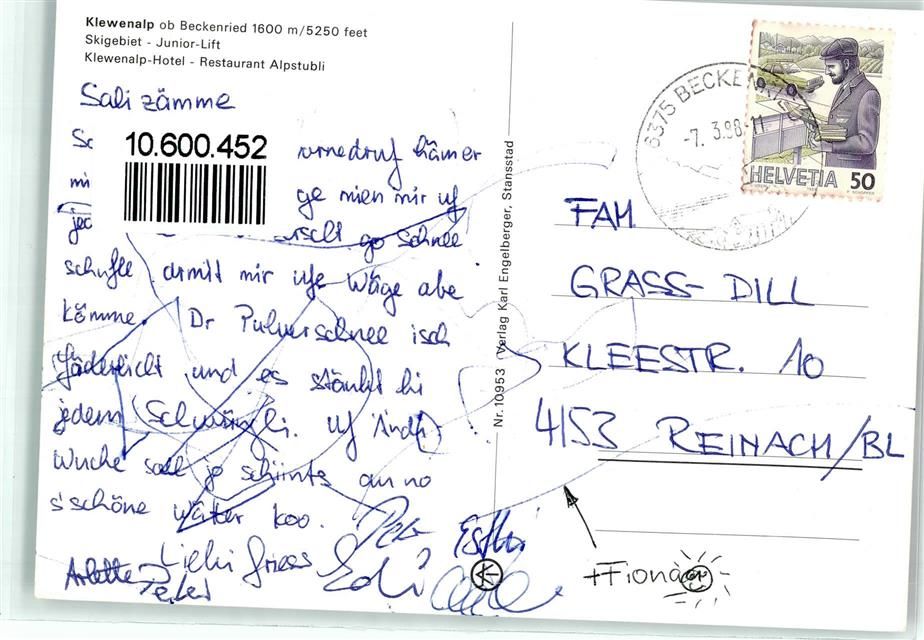 Klewenalp ob Beckenried 1600 m/5250 feet
Skigebiet - Junior-Lift
Klewenalp-Hotel - Restaurant Alpstubli
Sali zämme
10.600.452
hämer
mi ge mien mir uf
go Schnee
schufle, dmitt mir ufe Wäge abe
kömme. Dr Pulverschnee isch
fäderlicht und es stäubt bi
jedem Schwüngli. Uf Ändi
Wuche soll jo schiints au no
s'schöne Wätter koo.
Liebi Griess
Peter Esthi
Arlette
Edi
Nr. 10953 Verlag Karl Engelberger, Stansstad
6375 BECKENRIED
-7. 3.88-11
HELVETIA 50
FAM
GRASS-DILL
KLEESTR. 10
4153 REINACH/BL
+Fiona